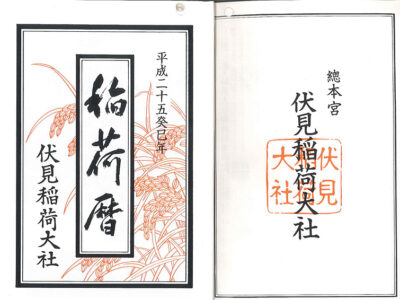 平成二十五癸巳年
稲荷暦
伏見稲荷大社
總本宮
伏見稲荷大社
伏見
稲荷
大社